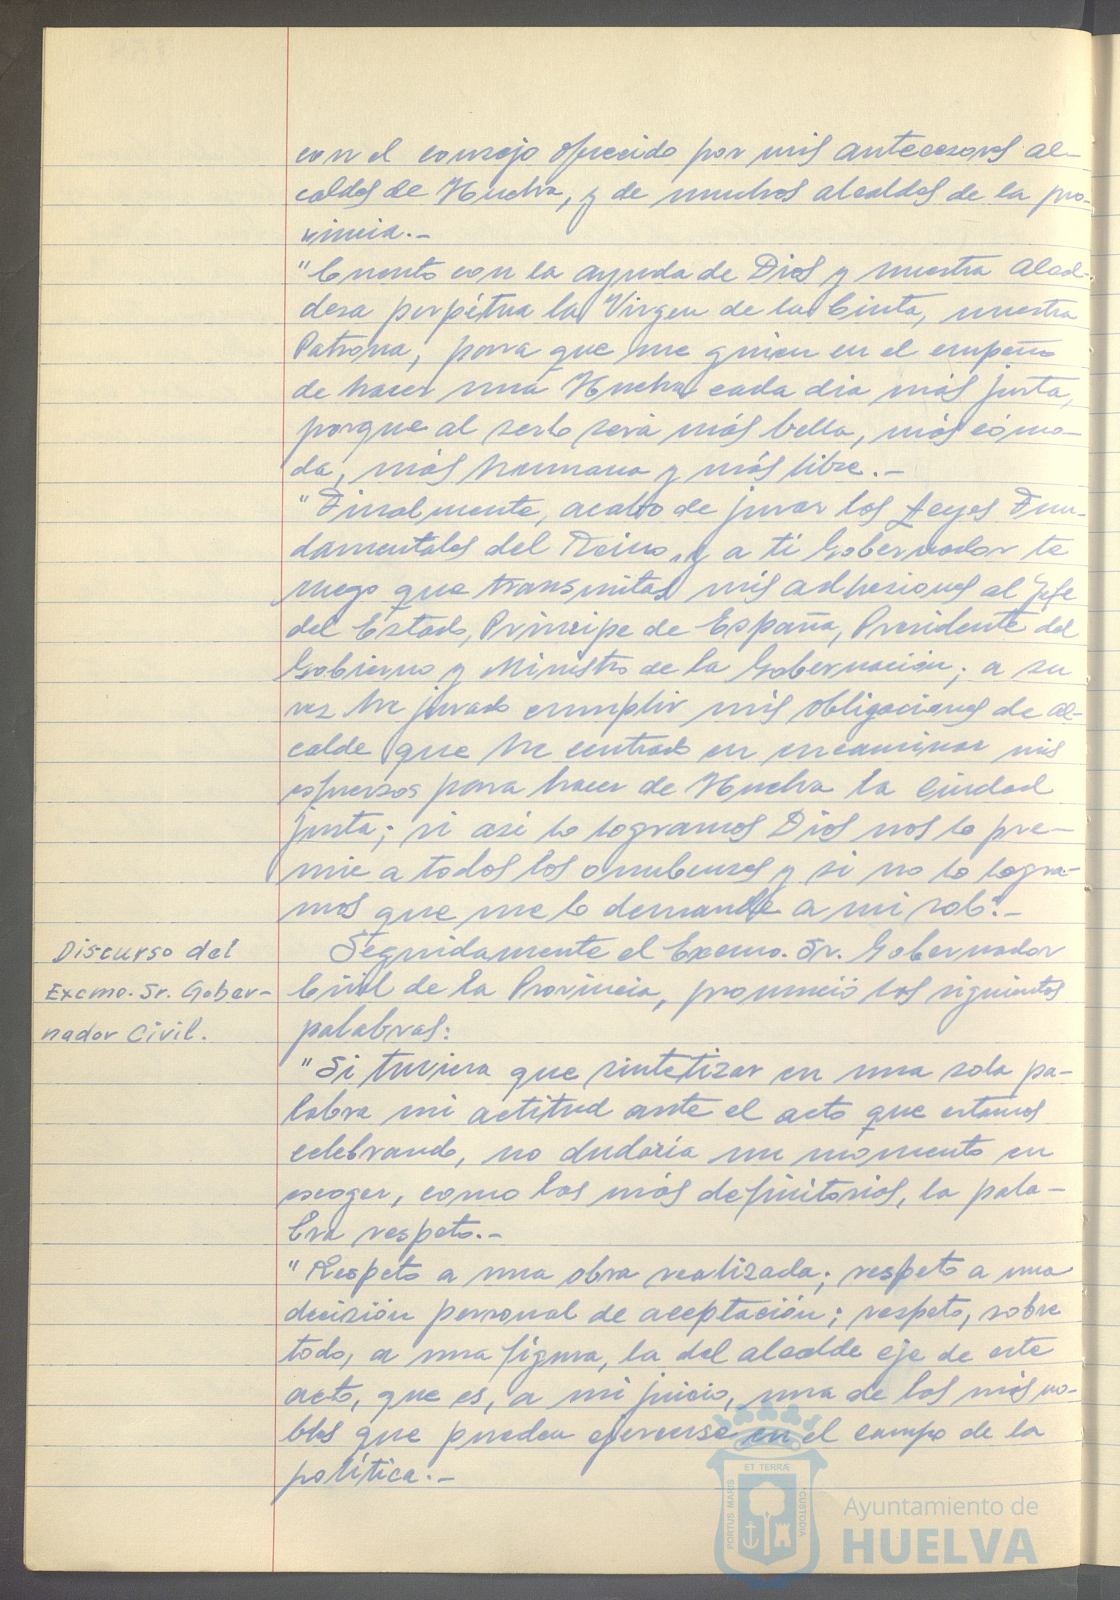 con el consejo ofrecido por mis antecesores al-
caldes de Huelva, y de muchos alcaldes de la pro-
vincia.-
"Cuento con la ayuda de Dios y nuestra Alcal-
desa perpétua la Virgen de la Cinta, nuestra
Patrona, para que me guien en el empeño
de hacer una Huelva cada dia más justa,
porque al serlo será más bella, más cómo-
da, más humana y más libre.-
"Finalmente, acabo de jurar las Leyes Fun-
damentales del Reino, y a ti Gobernador te
ruego que transmitas mis adhesiones al Jefe
del Estado, Principe de España, Presidente del
Gobierno y Ministro de la Gobernación; a su
vez he jurado cumplir mis obligaciones de al-
calde que he centrado en encaminar mis
esfuerzos para hacer de Huelva la Ciudad
justa; si asi lo logramos Dios nos lo pre-
mie a todos los onubenses y si no lo logra-
mos que me lo demande a mi solo".-
Discurso del
Excmo. Sr. Gober-
nador Civil.
Seguidamente el Excmo. Sr. Gobernador
Civil de la Provincia, pronunció las siguientes
palabras:
"Si tuviera que sintetizar en una sola pa-
labra mi actitud ante el acto que estamos
celebrando, no dudaría un momento en
escoger, como las más definitorias, la pala-
bra respeto.-
"Respeto a una obra realizada; respeto a una
decisión personal de aceptación; respeto, sobre
todo, a una figura, la del alcalde eje de este
acto, que es, a mi juicio, una de las más no-
bles que pueden ejercerse en el campo de la
política.-
ET TERRÆ
PORTUS MARIS
CUSTODIA
Ayuntamiento de
HUELVA